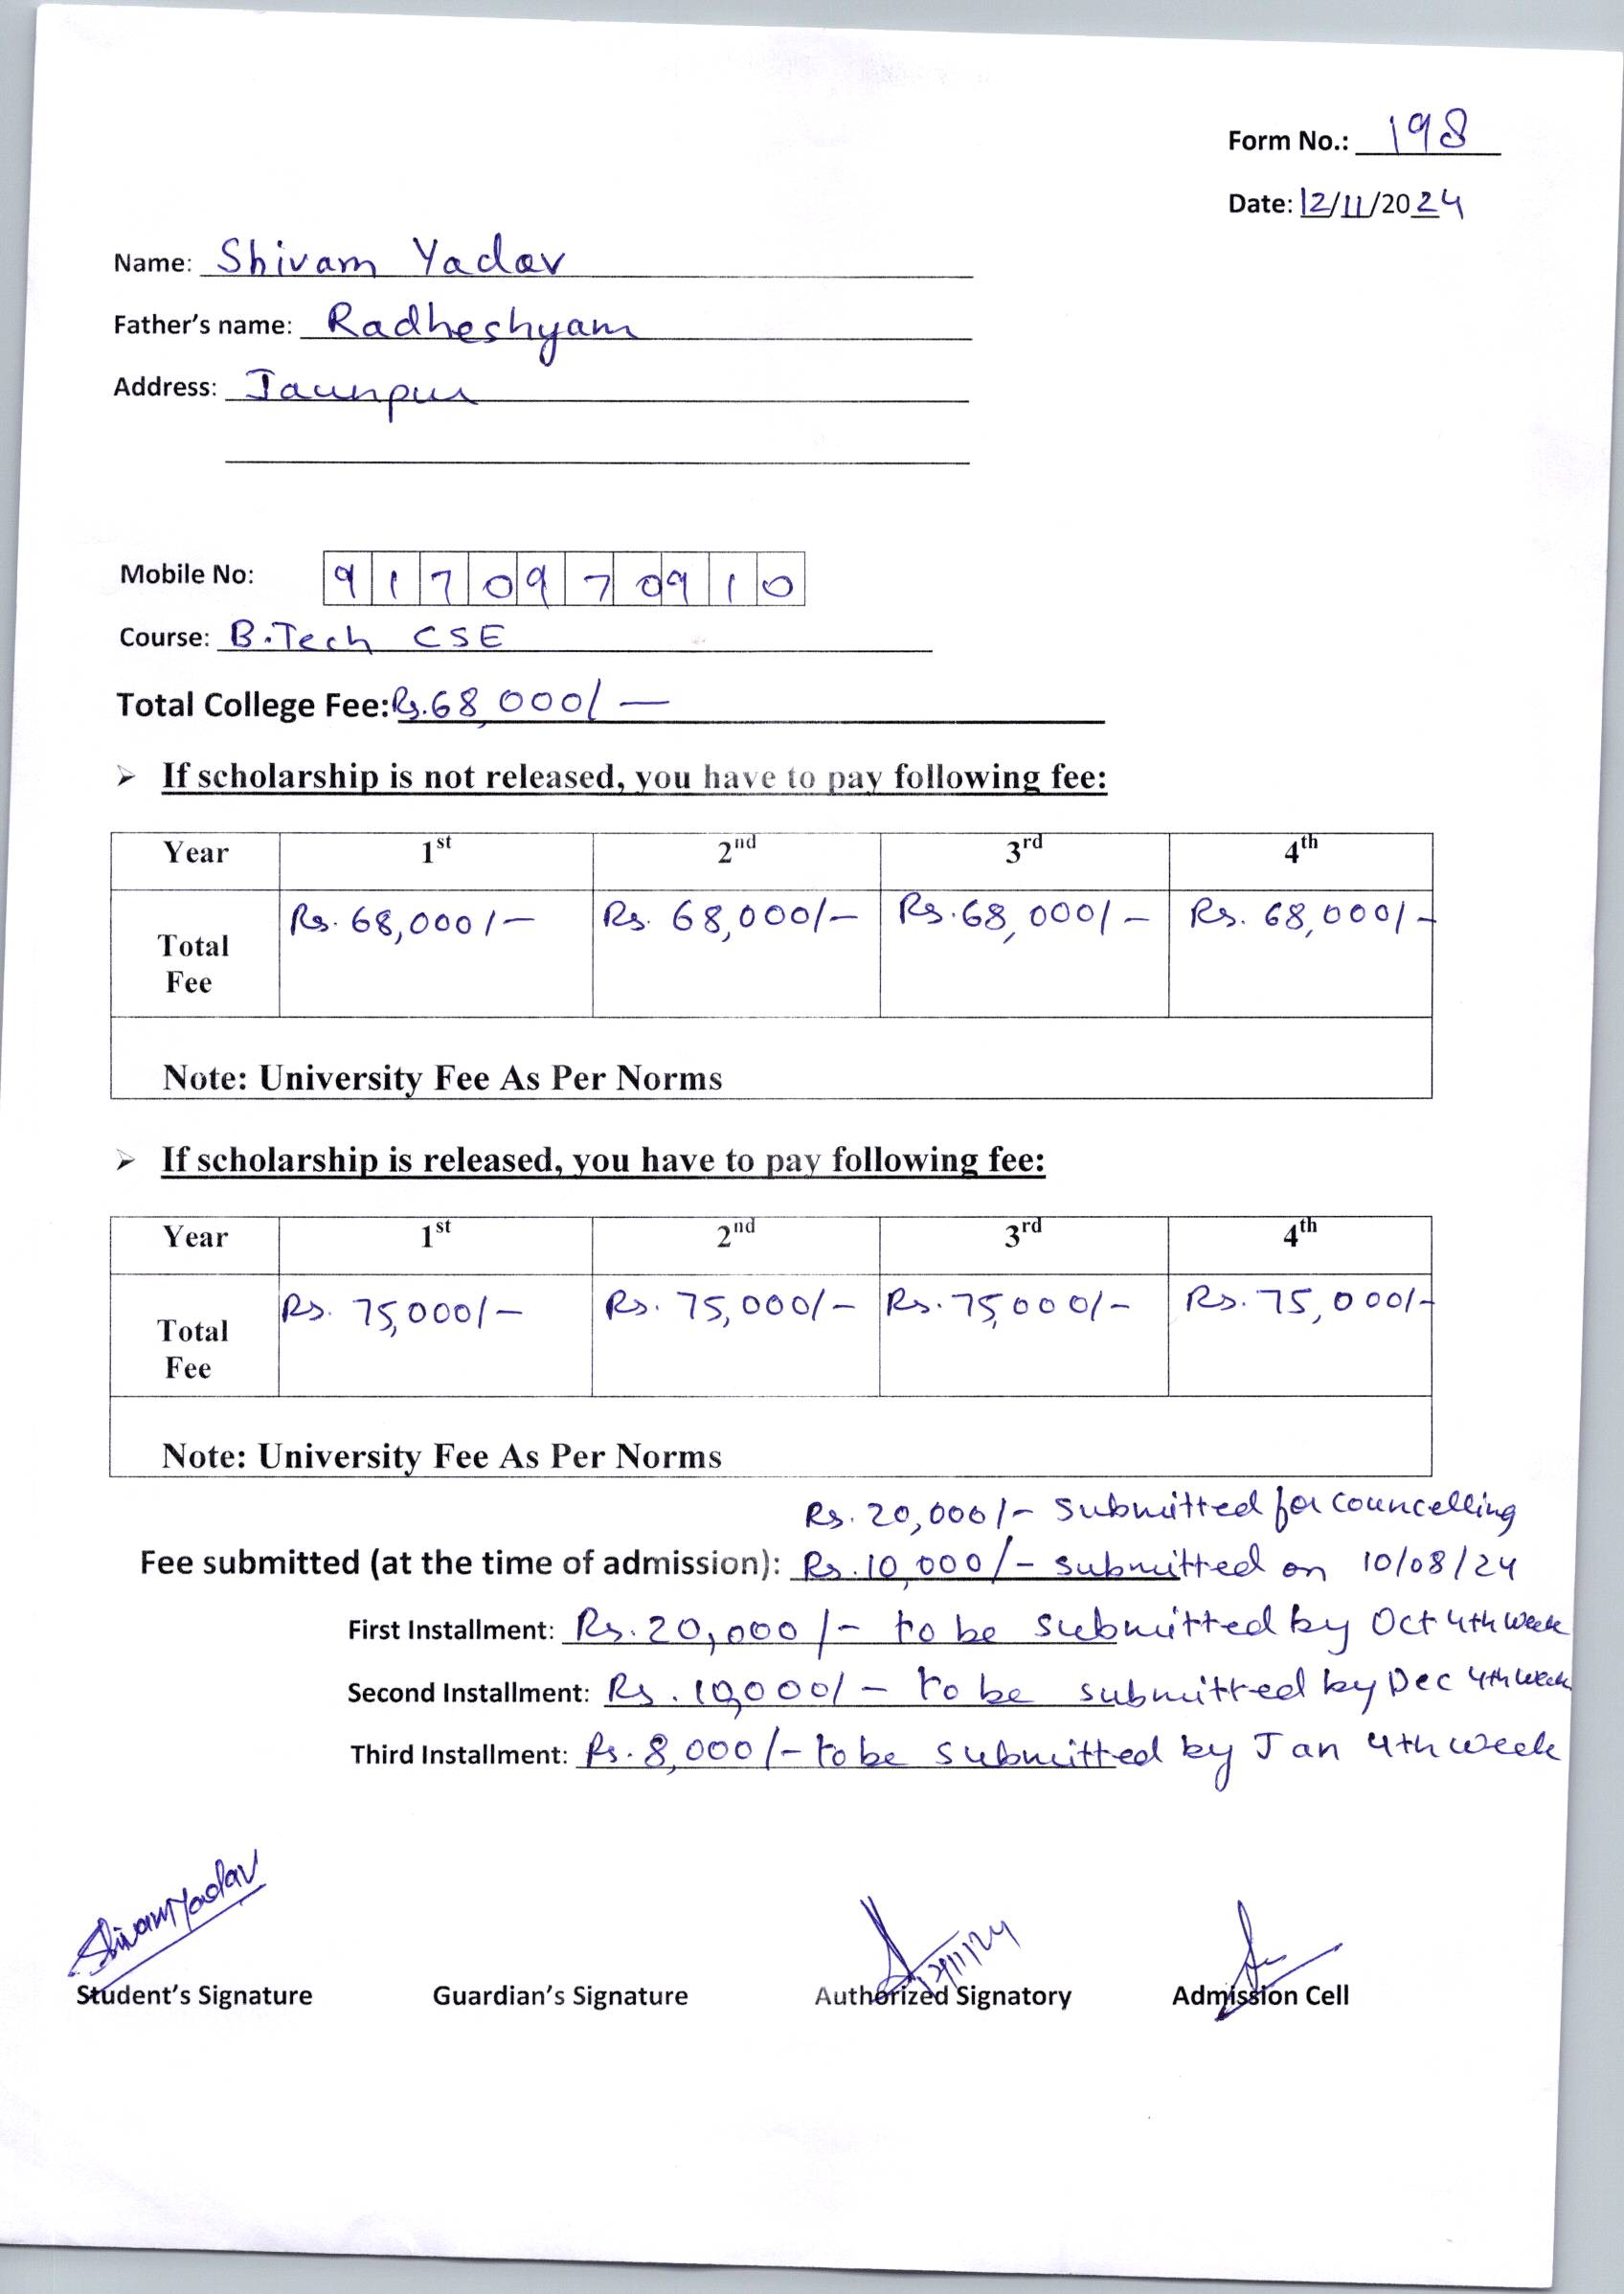 Form No.: 198
Date: 12/11/2024
Name: Shivam Yadav
Father's name: Radheshyam
Address: Jaunpur
Mobile No: 9170970910
Course: B.Tech CSE
Total College Fee: Rs.68,000/-
➢ If scholarship is not released, you have to pay following fee:
Year 1st 2nd 3rd 4th
Rs. 68,000/- Rs. 68,000/- Rs.68,000/- Rs. 68,000/-
Total
Fee
Note: University Fee As Per Norms
➢ If scholarship is released, you have to pay following fee:
Year 1st 2nd 3rd 4th
Rs. 75,000/- Rs. 75,000/- Rs.75,000/- Rs. 75,000/-
Total
Fee
Note: University Fee As Per Norms
Rs. 20,000/- submitted for councelling
Fee submitted (at the time of admission): Rs.10,000/- submitted on 10/08/24
First Installment: Rs.20,000/- to be submitted by Oct 4th week
Second Installment: Rs.10,000/- to be submitted by Dec 4th week
Third Installment: Rs.8,000/- to be submitted by Jan 4th week
Shivam Yadav
12/11/24
Student's Signature Guardian's Signature Authorized Signatory Admission Cell